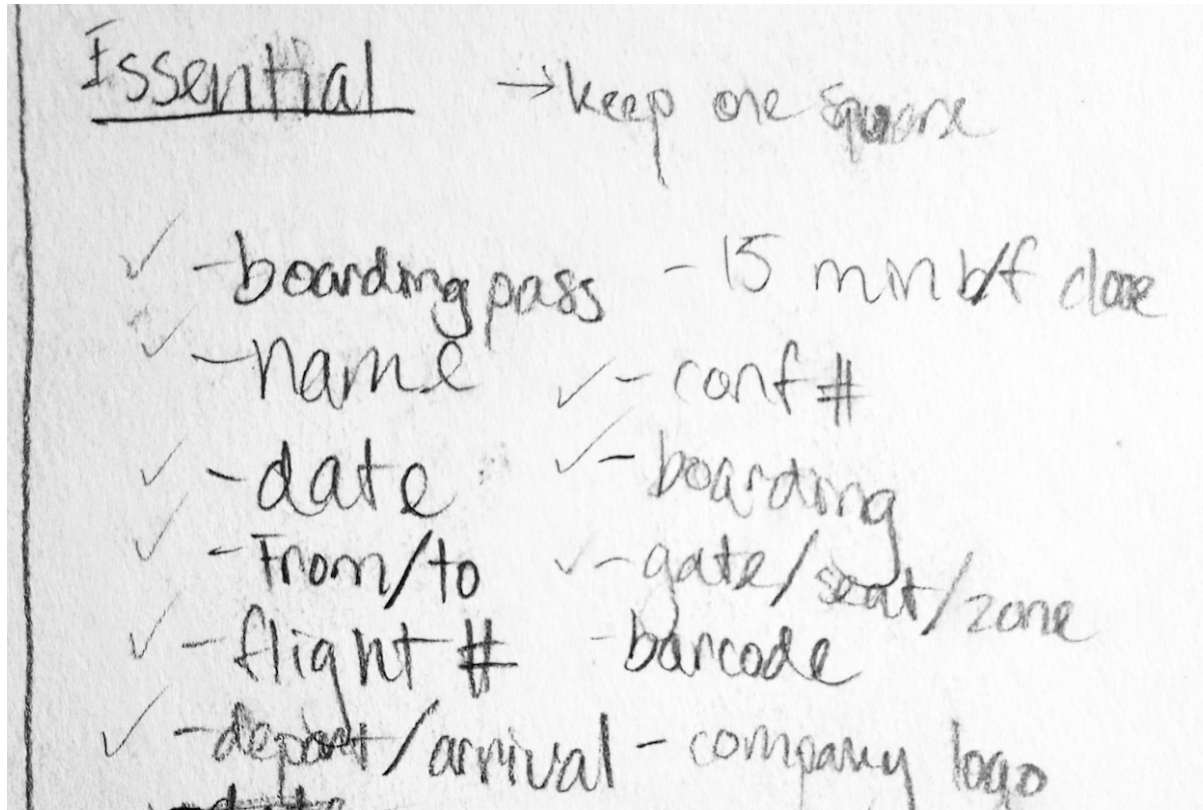 Essential → keep one square
✓ -boarding pass - 15 min b/f close
✓ -name ✓ -conf #
✓ -date ✓ -boarding
✓ -From/to ✓ -gate/seat/zone
✓ -flight # -barcode
✓ -depart/arrival -company logo